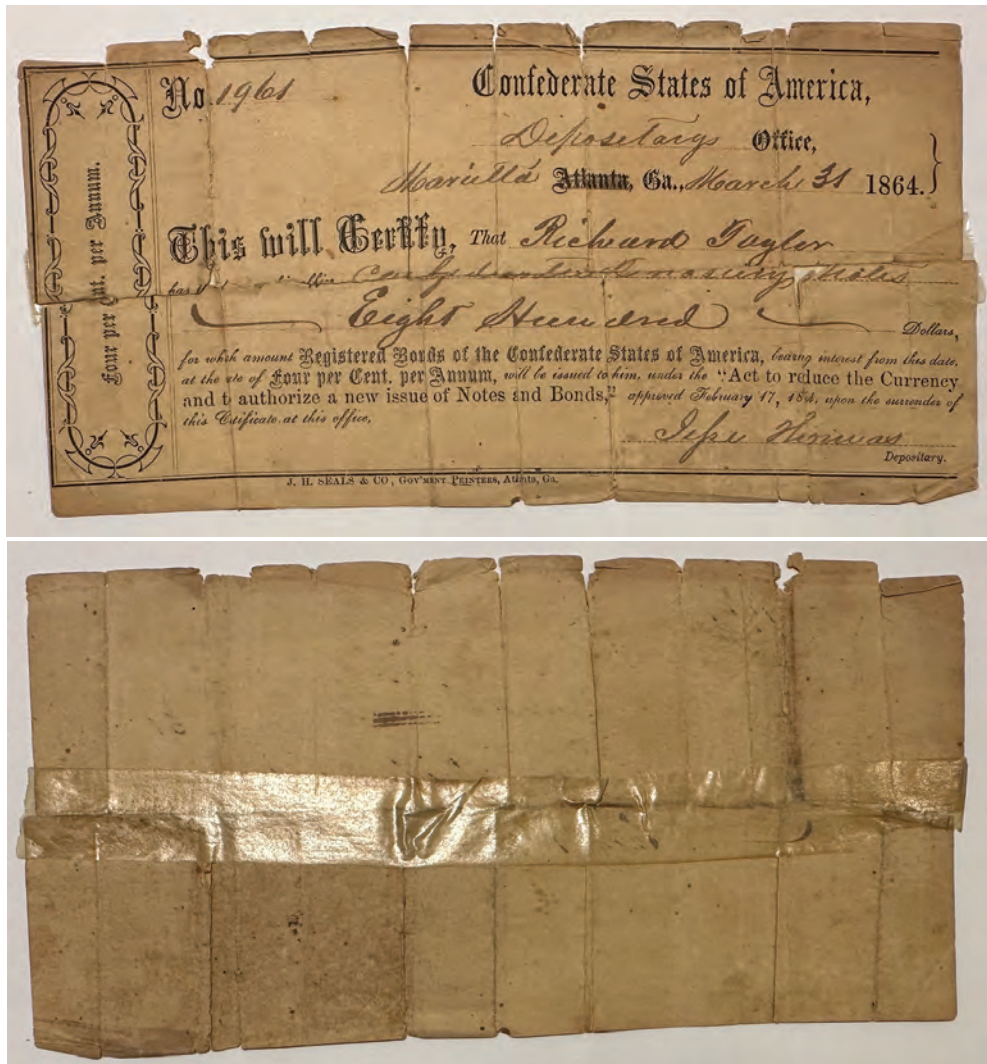 Four per Cent. per Annum.
No. 1961
Confederate States of America,
Depositary's Office,
Marietta Atlanta, Ga., March 31 1864.
This will Certify, That Richard Tayler
has Confederate Treasury Notes
Eight Hundred Dollars,
for which amount Registered Bonds of the Confederate States of America, bearing interest from this date,
at the ate of Four per Cent. per Annum, will be issued to him, under the "Act to reduce the Currency
and t authorize a new issue of Notes and Bonds," approved February 17, 1864, upon the surrender of
this Certificate at this office,
Depositary.
J. H. SEALS & CO, GOV'MENT PRINTERS, Atlanta, Ga.